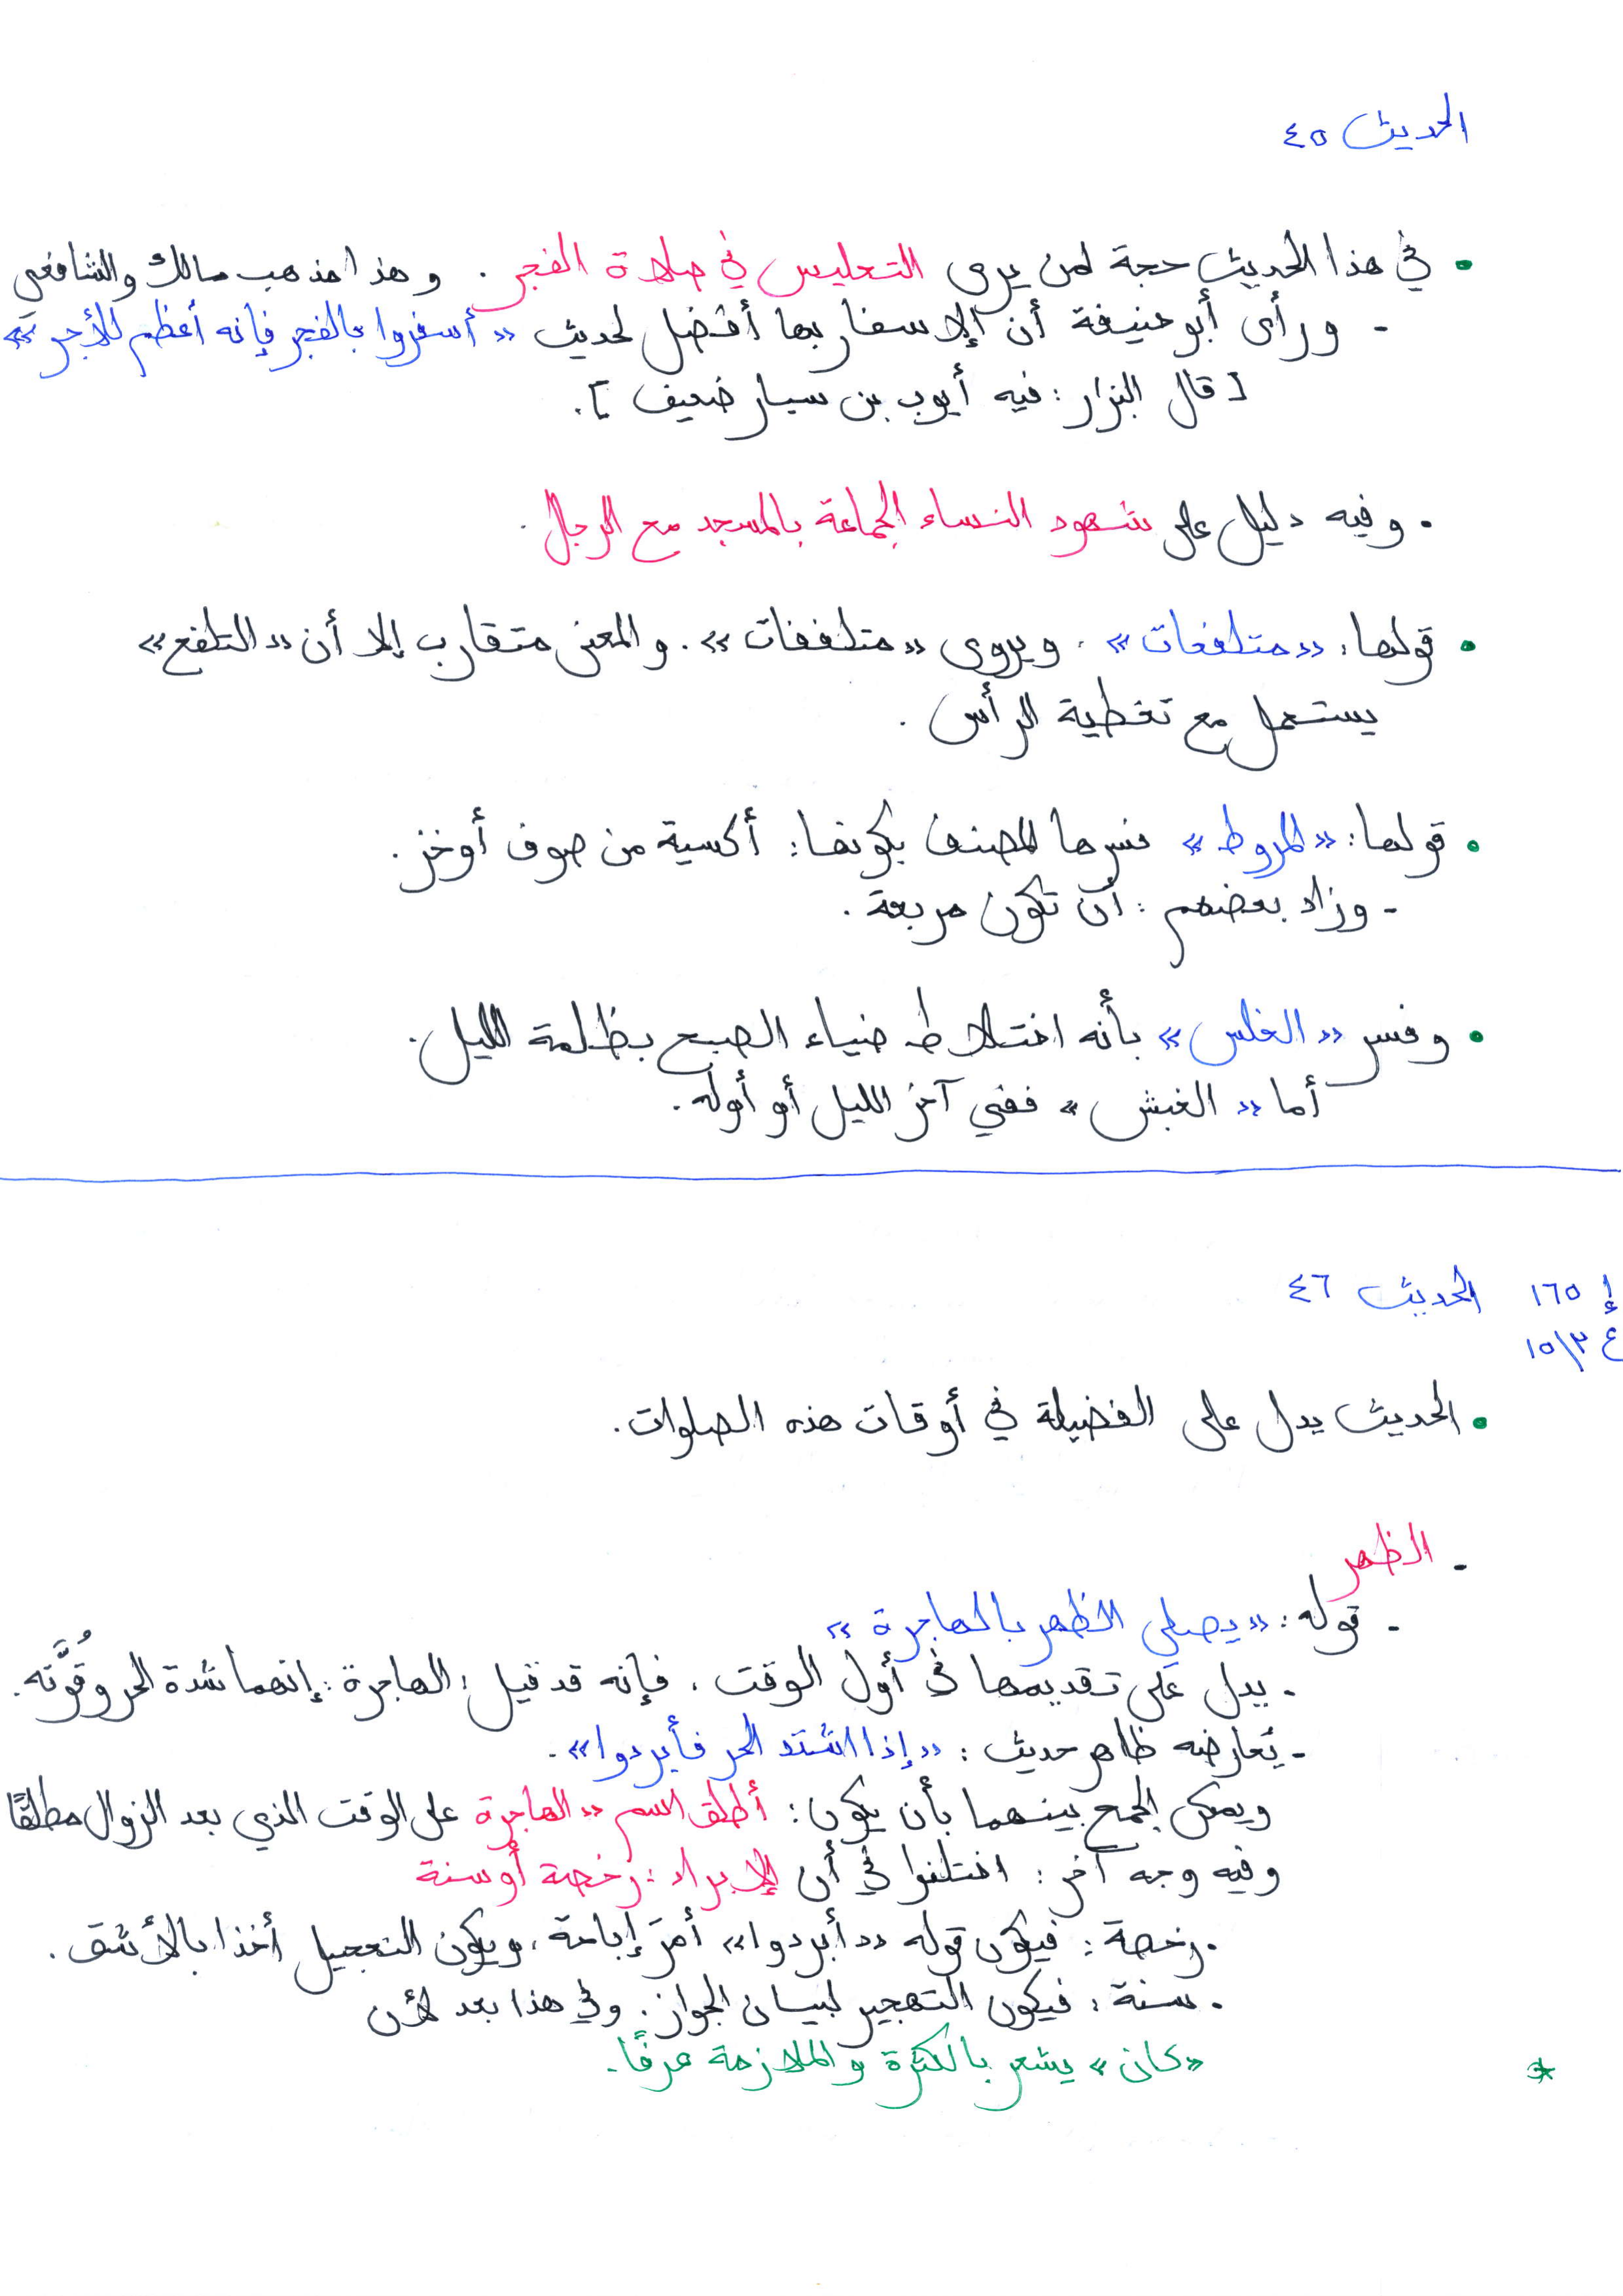 الحديث ٤٥
• في هذا الحديث حجة لمن يرى التغليس في صلاة الفجر. وهذا مذهب مالك والشافعي
- ورأى أبو حنيفة أن الإسفار بها أفضل لحديث «أسفروا بالفجر فإنه أعظم للأجر»
[قال البزار: فيه أيوب بن سيار ضعيف].
• وفيه دليل على شهود النساء الجماعة بالمسجد مع الرجال.
• قولها: «متلفعات». ويروى «متلففات». والمعنى متقارب إلا أن «التلفع»
يستعمل مع تغطية الرأس.
• قولها: «المروط» فسرها المصنف بكونها: أكسية من صوف أو خز.
- وزاد بعضهم: أن تكون مربعة.
• وفسر «الغلس» بأنه اختلاط ضياء الصبح بظلمة الليل.
أما «الغبش» ففي آخر الليل أو أوله.
إ ١٦٥ الحديث ٤٦
ع ١٥/٢
• الحديث يدل على الفضيلة في أوقات هذه الصلوات.
- الظهر
- قوله: «يصلي الظهر بالهاجرة»
- يدل على تقديمها في أول الوقت، فإنه قد قيل: الهاجرة: إنهما شدة الحر وقُوَّته.
- يُعارضه ظاهر حديث: «إذا اشتد الحر فأبردوا».
ويمكن الجمع بينهما بأن يكون: أطلق اسم «الهاجرة على الوقت الذي بعد الزوال مطلقًا
وفيه وجه آخر: اختلفوا في أن الإبراد: رخصة أو سنة
• رخصة: فيكون قوله «أبردوا» أمرَ إباحة، ويكون التعجيل أخذا بالأشق.
• سنة: فيكون التهجير لبيان الجواز. وفي هذا بعد لأن
* «كان» يشعر بالكثرة والملازمة عرفًا.